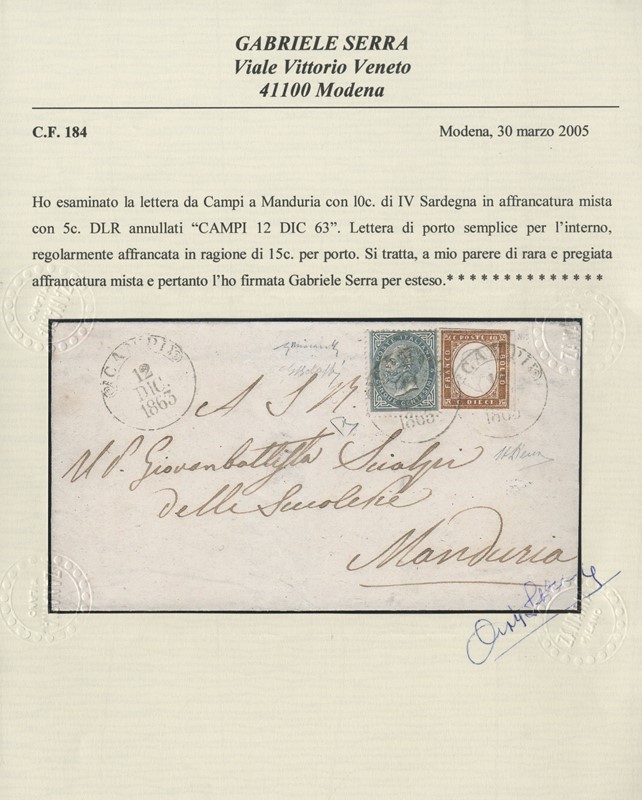 GABRIELE SERRA
Viale Vittorio Veneto
41100 Modena
C.F. 184
Modena, 30 marzo 2005
Ho esaminato la lettera da Campi a Manduria con l0c. di IV Sardegna in affrancatura mista
con 5c. DLR annullati “CAMPI 12 DIC 63”. Lettera di porto semplice per l’interno,
regolarmente affrancata in ragione di 15c. per porto. Si tratta, a mio parere di rara e pregiata
affrancatura mista e pertanto l’ho firmata Gabriele Serra per esteso.* * * * * * * * * * * * * *
CAMPI
12
DIC.
1863
C. POSTE 10
FRANCO
BOLLO
C. DIECI
CAMPI
1863
A S
Giovanbattista
delle
Manduria